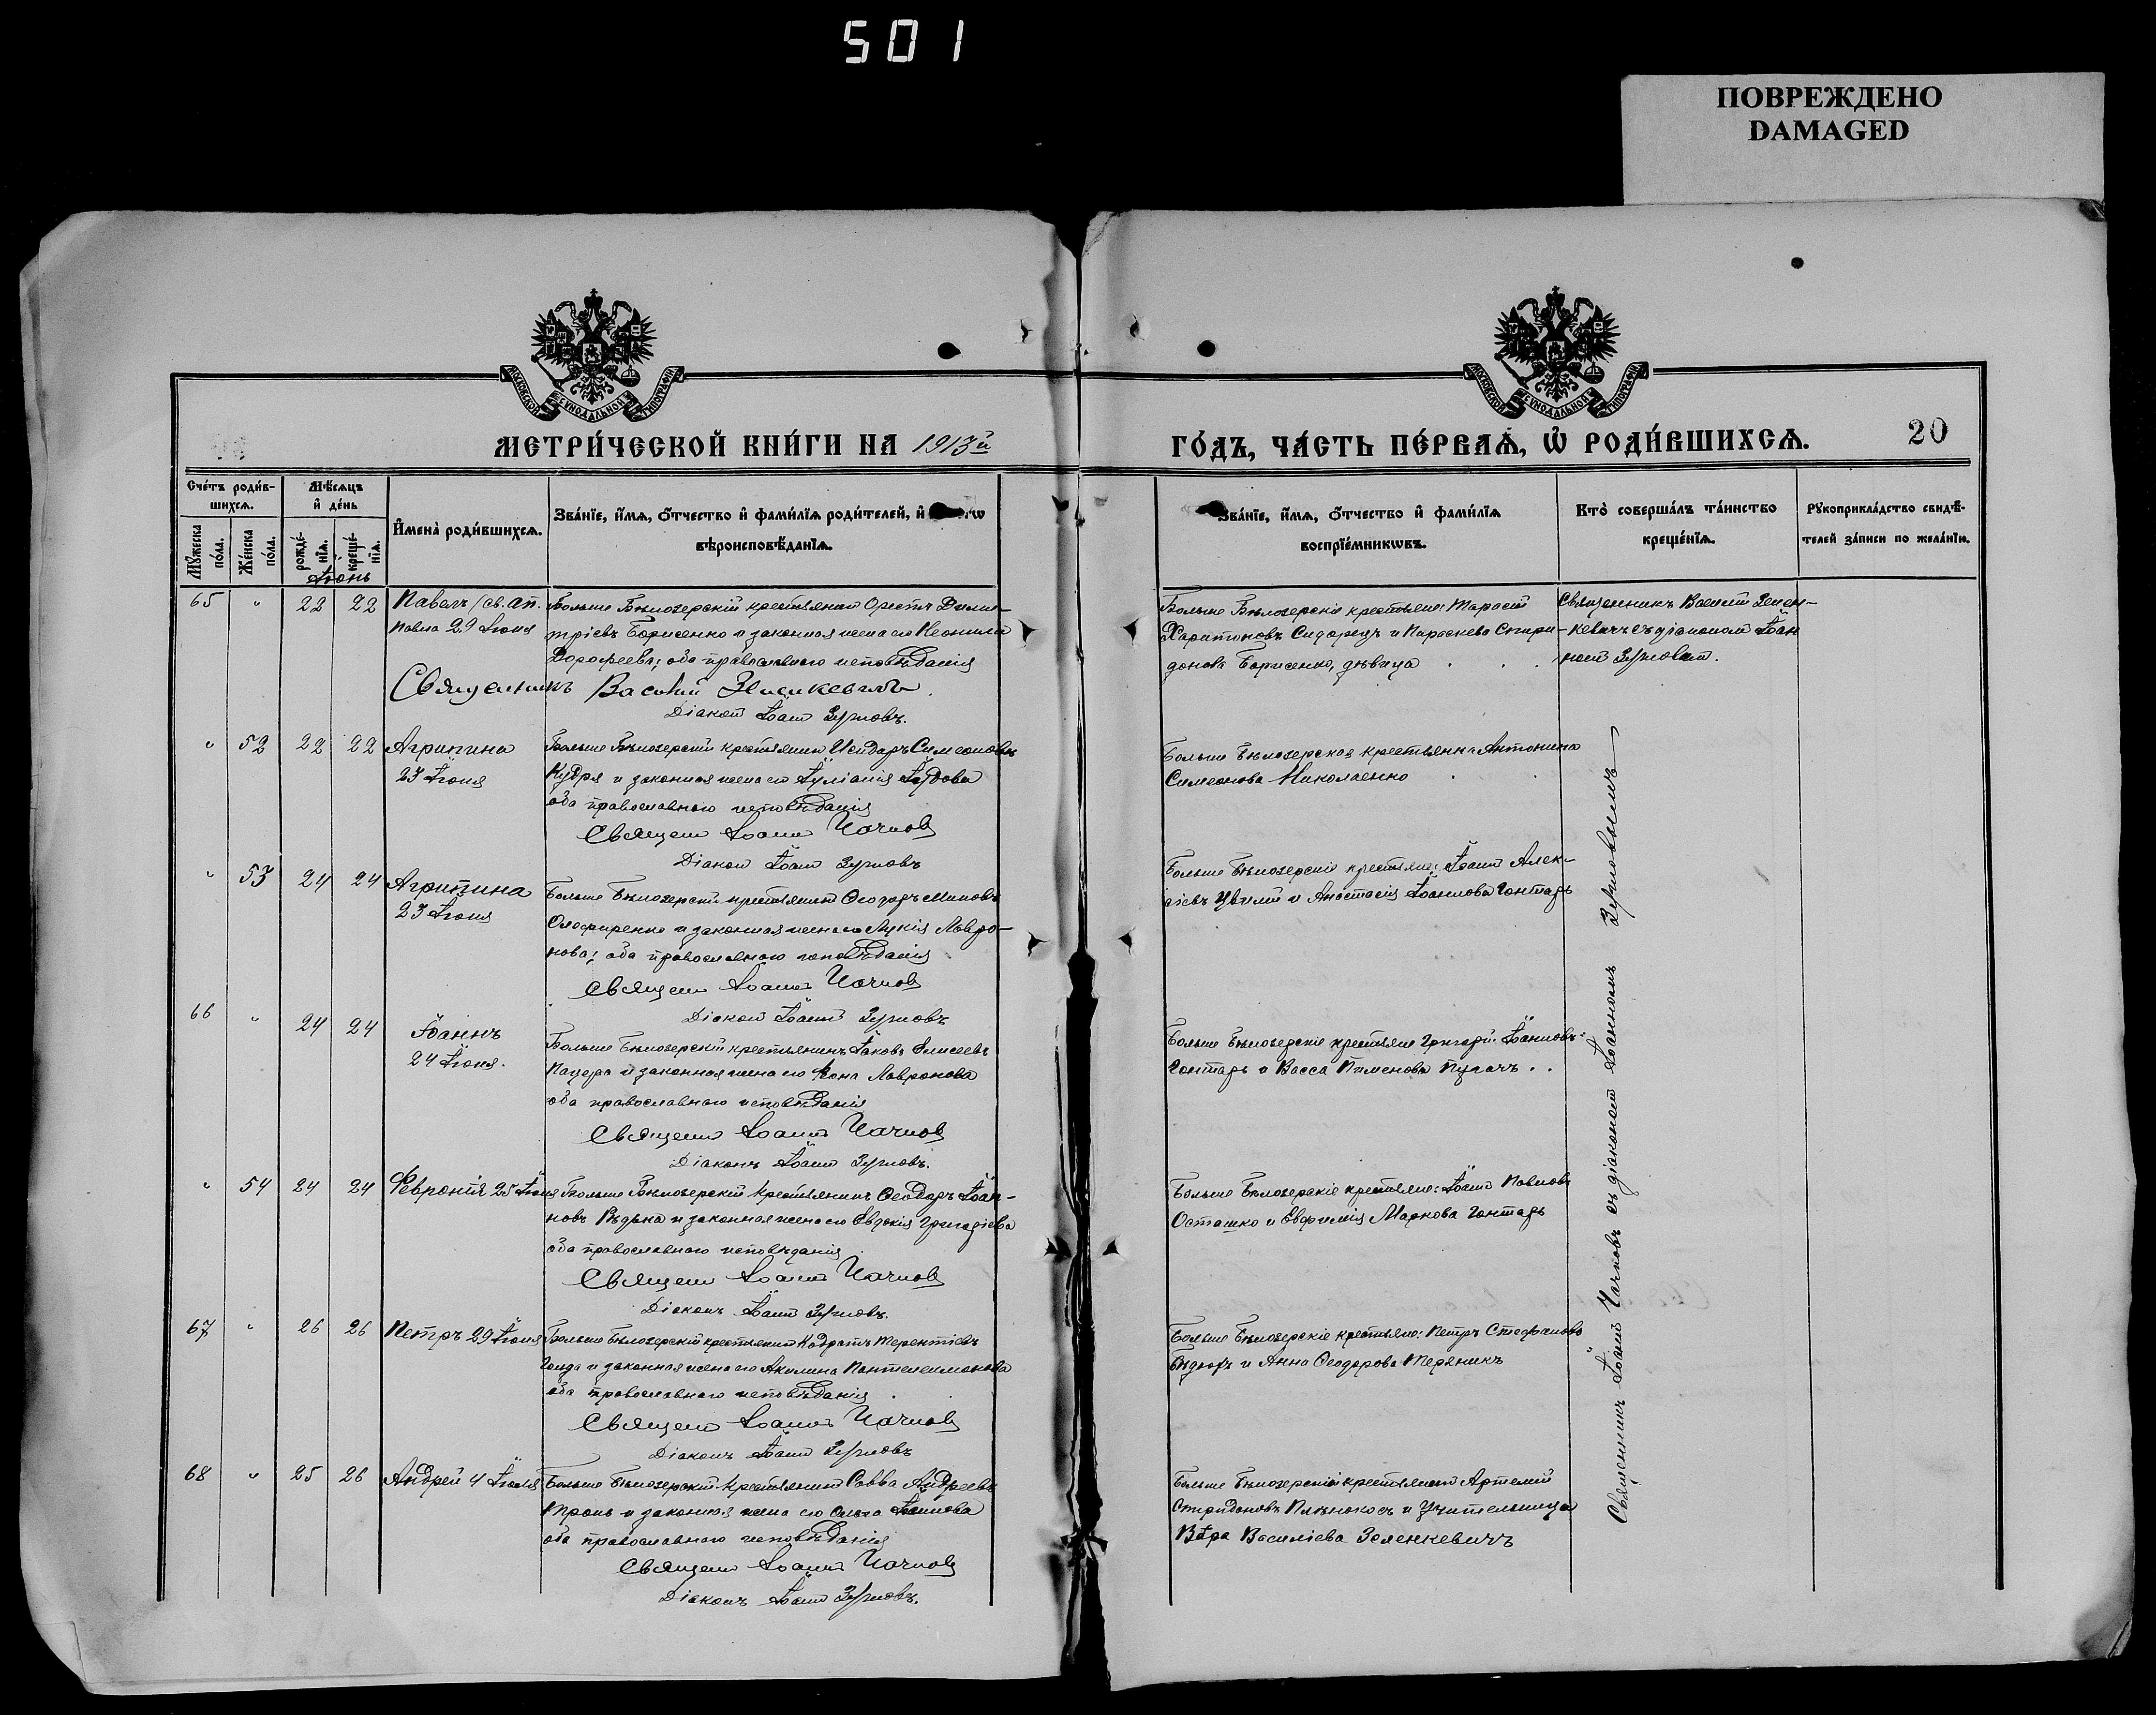 501
ПОВРЕЖДЕНО
DAMAGED
МОСКОВСКОЙ СѴНОДАЛЬНОЙ ТИПОГРАФІИ
МОСКОВСКОЙ СѴНОДАЛЬНОЙ ТИПОГРАФІИ
МЕТРИ́ЧЕСКОЙ КНИ́ГИ НА 1913й
ГО́ДЪ, ЧА́СТЬ ПЕ́РВАѦ, Ѡ҆ РОДИ́ВШИХСѦ.
20
Сче́тъ роди́в-
шихсѧ.
Мꙋ́жеска по́ла.
Же́нска по́ла.
Мѣ́сѧцъ
и҆ де́нь
рожде́-
нїѧ.
креще́-
нїѧ.
И҆мена̀ роди́вшихсѧ.
Зва́нїе, и҆́мѧ, ѻ҆́тчество и҆ фами́лїѧ роди́телей, и҆
вѣроисповѣ́данїѧ.
Зва́нїе, и҆́мѧ, ѻ҆́тчество и҆ фами́лїѧ
воспрїе́мникѡвъ.
Кто̀ соверша́лъ та́инство
креще́нїѧ.
Рꙋкоприкла́дство свидѣ́-
телей за́писи по жела́нїю.
Іюнь
65 " 22 22 Павелъ (св. ап.
Павла 29 Іюня
Больше Бѣлозерскій крестьянинъ Орестъ Дими-
тріевъ Борисенко и законная жена его Неонила
Дорофеева; оба православнаго исповѣданія
Священникъ Василій Зелинкевичъ.
Діаконъ Іоаннъ Зерновъ.
Больше Бѣлозерскіе крестьяне: Тарасій
Харитоновъ Сидорецъ и Параскева Спири-
донова Борисенко, дѣвица
Священникъ Василій Зелен-
кевичъ съ діакономъ Іоан
номъ Зерновымъ.
" 52 22 22 Агрипина
23 Іюня
Больше Бѣлозерскій крестьянинъ Исидоръ Симеоновъ
Кудря и законная жена его Іуліанія Іудова
оба православнаго исповѣданія
Священ Іоаннъ Чачновъ
Діакон Іоаннъ Зерновъ
Больше Бѣлозерская крестьянка Антонина
Симеонова Николаенко
" 53 24 24 Агрипина
23 Іюня
Больше Бѣлозерскій крестьянинъ Ѳеодоръ
и законная жена его Лукія Лавро-
нова; оба православнаго исповѣданія
Священ Іоаннъ Чачновъ
Діакон Іоаннъ Зерновъ
Больше Бѣлозерскіе крестьяне: Іоаннъ Алек-
сіевъ и Анастасія Іоаннова Гонтарь
66 " 24 24 Іоаннъ
24 Іюня.
Больше Бѣлозерскій крестьянинъ Іаковъ Елисеевъ
Пацера и законная жена его Лавронова
оба православнаго исповѣданія
Священ Іоаннъ Чачновъ
Діаконъ Іоаннъ Зерновъ.
Больше Бѣлозерскіе крестьяне Григорій Іоанновъ
Гонтарь и Васса Пименова Пугачъ
" 54 24 24 Февронія 25 Іюня
Больше Бѣлозерскій крестьянинъ Ѳеодоръ Іоан-
новъ Рѣдька и законная жена его Евдокія Григоріева
оба православнаго исповѣданія
Священ Іоаннъ Чачновъ
Діаконъ Іоаннъ Зерновъ.
Больше Бѣлозерскіе крестьяне: Іоаннъ Павловъ
Осташко и Евфимія Маркова Гонтарь
67 " 26 26 Петръ 29 Іюня
Больше Бѣлозерскій крестьянинъ Кодратъ Терентіевъ
и законная жена его Акилина Пантелеимонова
оба православнаго исповѣданія
Священ Іоаннъ Чачновъ
Діаконъ Іоаннъ Зерновъ
Больше Бѣлозерскіе крестьяне: Петръ Стефановъ
и Анна Ѳеодорова Теряникъ
68 " 25 26 Андрей 4 Іюля
Больше Бѣлозерскій крестьянинъ Савва Андреевъ
Тронь и законная жена его Ольга Іоаннова
оба православнаго исповѣданія
Священ Іоаннъ Чачновъ
Діаконъ Іоаннъ Зерновъ.
Больше Бѣлозерскій крестьянинъ Артемій
Спиридоновъ и учительница
Вѣра Василіева Зеленкевичъ
Священникъ Іоаннъ Чачновъ съ діакономъ Іоанномъ Зерновымъ